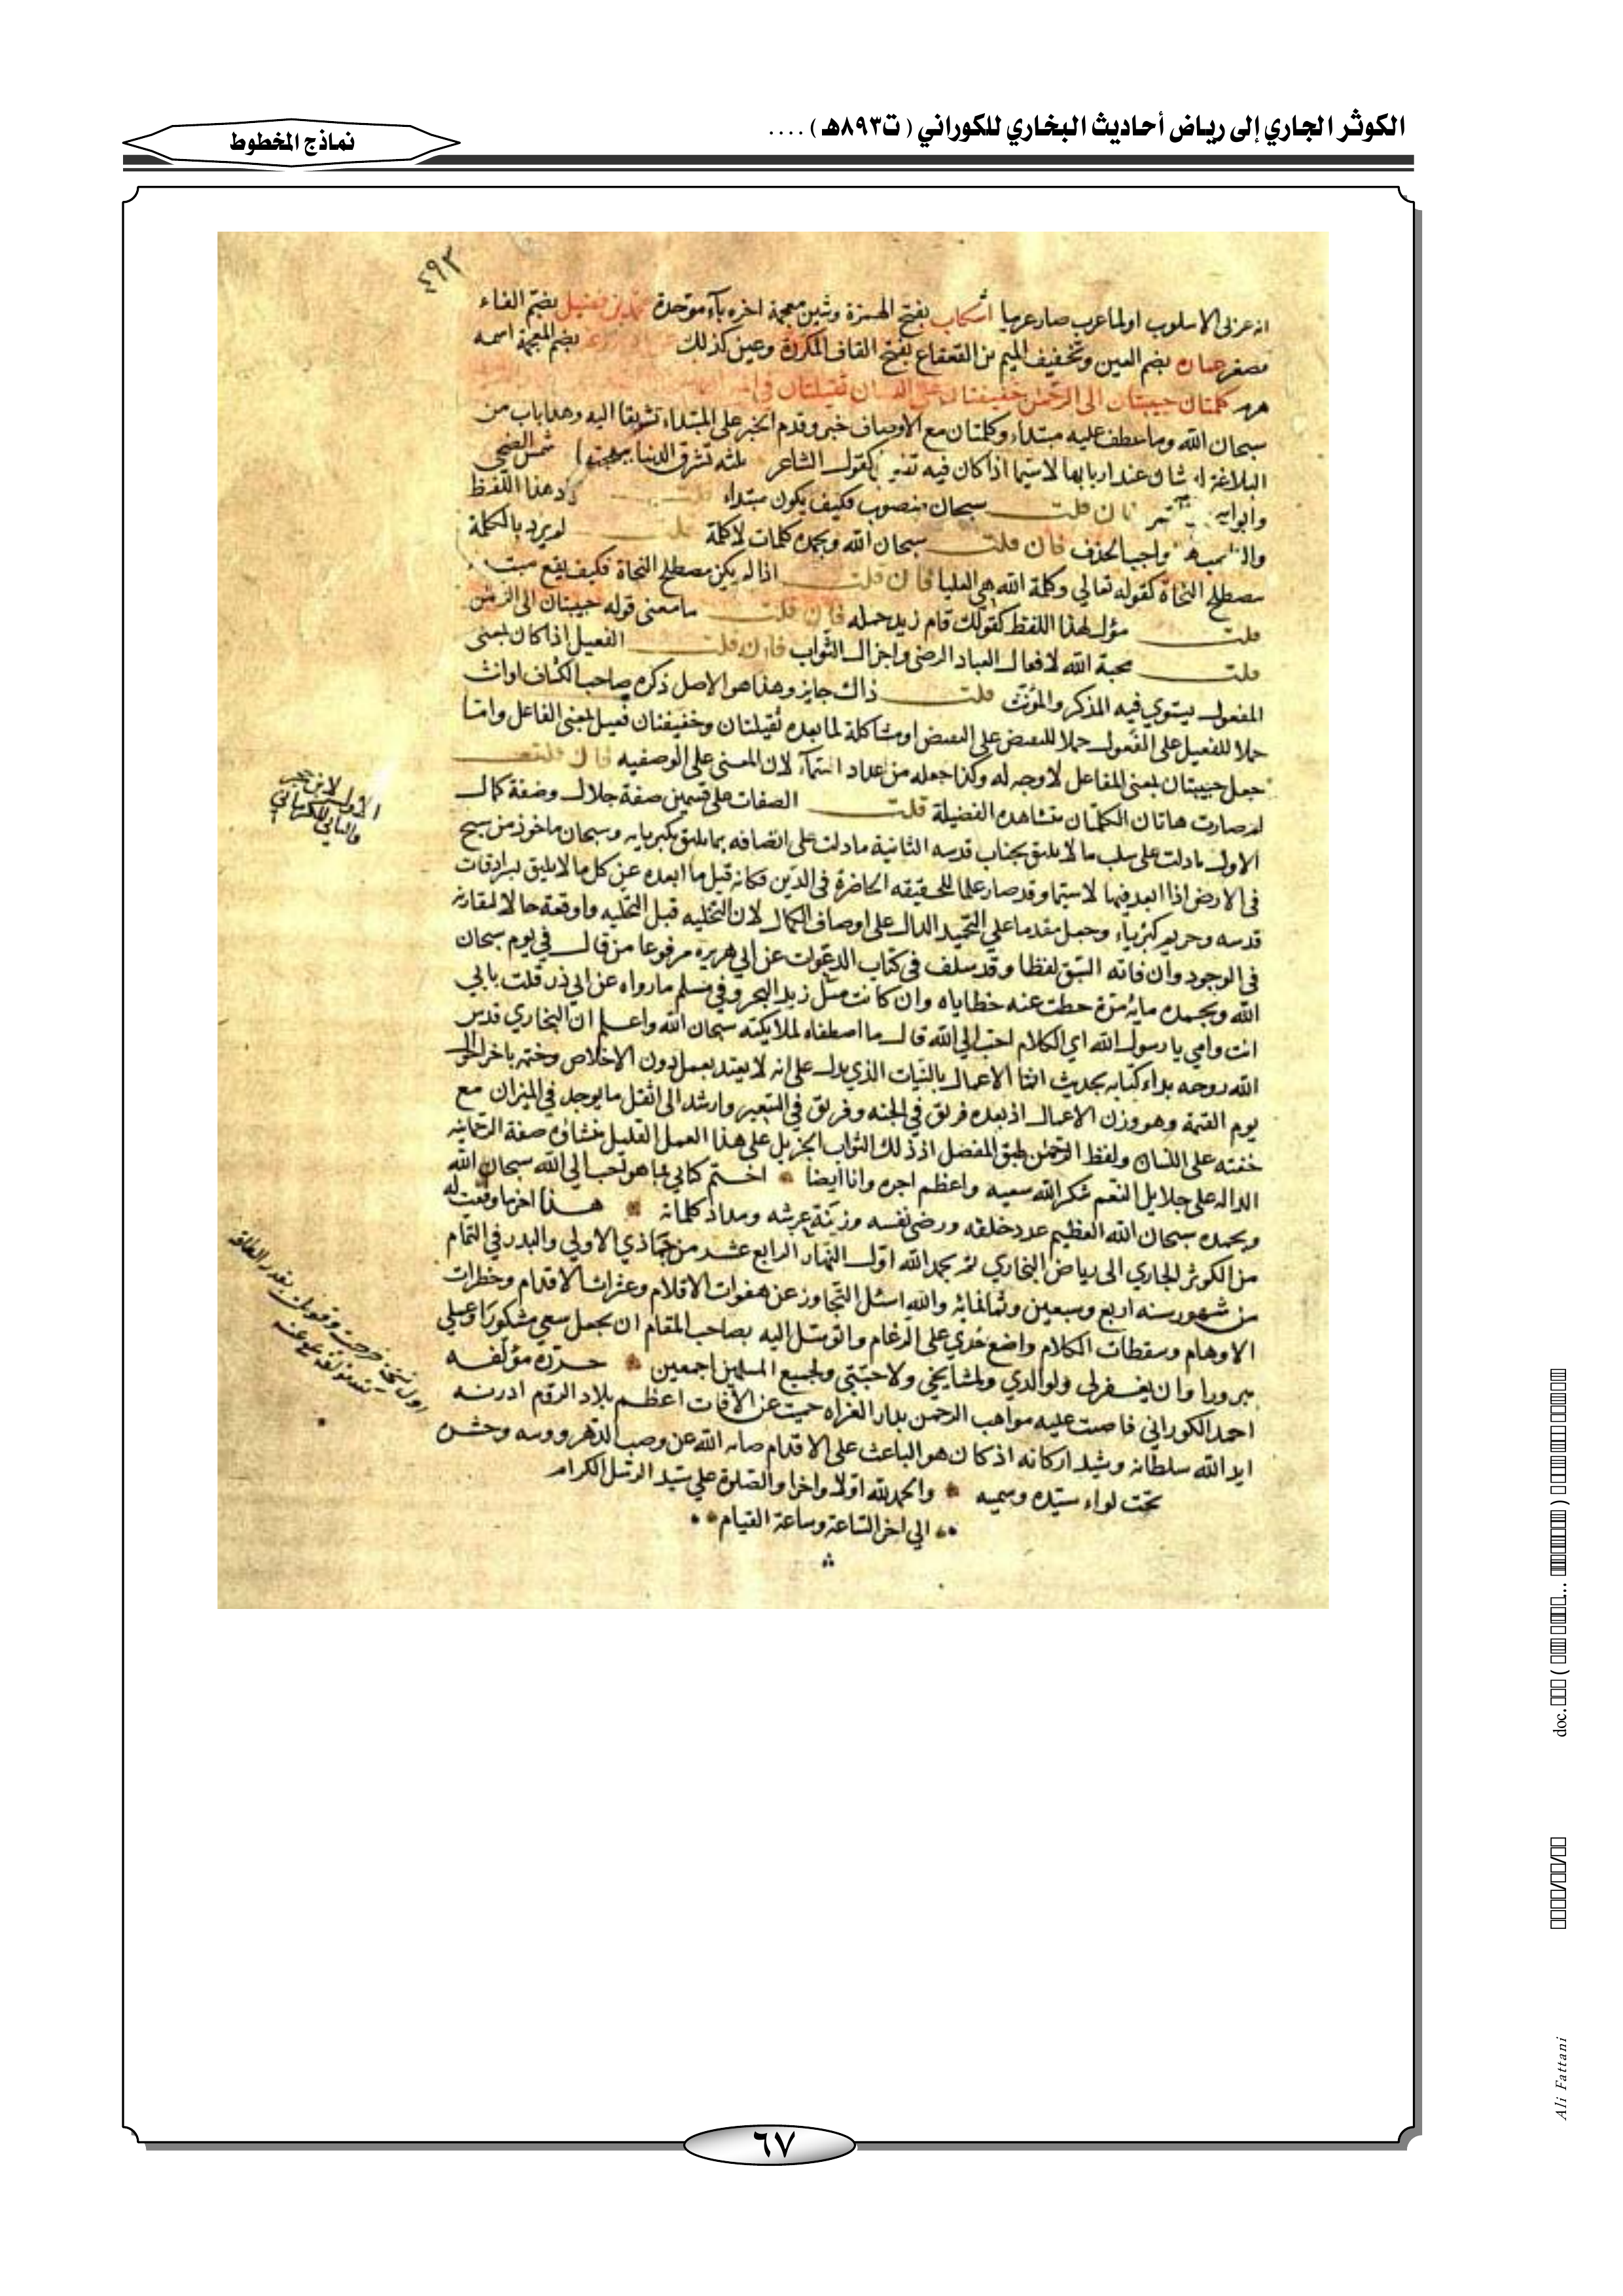 الكوثر الجاري إلى رياض أحاديث البخاري للكوراني ( ت٨٩٣هـ ) ....
نماذج المخطوط
٤٩٣
انه عربي الاسلوب او لما عرب صار عربيا أشكاب بفتح الهمزة وشين معجمة اخره باء موحدة محمد بن فضيل بضم الفاء
مصغر عمارة بضم العين وتخفيف الميم بن القعقاع بفتح القاف المكررة وعين كذلك بضم المعجمة اسمه
هرم كلمتان حبيبتان الى الرحمن خفيفتان على اللسان ثقيلتان في
سبحان الله وما عطف عليه مبتداء وكلمتان مع الاوصاف خبر وقدم الخبر على المبتداء تشويقا اليه وهذا باب من
البلاغة له شان عند اربابها لاسيما اذا كان فيه كقول الشاعر ثلثه تشرق الدنيا ببهجتها شمس الضحى
وابو فان قلت سبحان منصوب فكيف يكون مبتداء قلت هذا اللفظ
واجب الحذف فان قلت سبحان الله وبحمده كلمات لا كلمة قلت لم يرد بالكلمة
مصطلح النحاة كقوله تعالى وكلمة الله هي العليا فان قلت اذا لم يكن مصطلح النحاة فكيف يقع مبتدا
قلت مؤل لهذا اللفظ كقولك قام زيد جملة فان قلت ما معنى قوله حبيبتان الى الرحمن
قلت محبة الله لافعال العباد الرضى واجزال الثواب فان قلت الفعيل اذا كان بمعنى
المفعول يستوي فيه المذكر والمؤنث قلت ذاك جايز وهذا هو الاصل ذكره صاحب الكشاف او انث
حملا للفعيل على الفعول حملا للبعض على البعض او مشاكلة لما بعده ثقيلتان وخفيفتان فعيل بمعنى الفاعل واما
جعل حبيبتان بمعنى الفاعل لا وجه له وكذا جعله من عداد الاسماء لان المعنى على الوصفيه فان قلت
لم صارت هاتان الكلمتان بهذه الفضيلة قلت الصفات على قسمين صفة جلال وصفة كمال
الاول ما دلت على سلب ما لا يليق بجناب قدسه الثانية ما دلت على اتصافه بما يليق بكبريايه وسبحان ماخوذ من سبح
في الارض اذا ابعد فيها لاسيما وقد صار علما للحقيقه الحاضرة في الذهن فكانه قيل ما ابعده عن كل ما لا يليق بسرادقات
قدسه وحريم كبرياء وجعل مقدما على التحميد الدال على اوصاف الكمال لان التخليه قبل التحليه واوقعه حالا لمقارنه
في الوجود وان فاته السبق لفظا وقد سلف في كتاب الدعوات عن ابي هريره مرفوعا من قال في يوم سبحان
الله وبحمده مايه مرة حطت عنه خطاياه وان كانت مثل زبد البحر وفي مسلم ما رواه عن ابي ذر قلت بابي
انت وامي يا رسول الله اي الكلام احب الى الله قال ما اصطفاه لملايكته سبحان الله واعلم ان البخاري قدس
الله روحه بداء كتابه بحديث انما الاعمال بالنيات الذي يدل على انه لا يعتد بعمل دون الاخلاص وختمه باخر
يوم القيمة وهو وزن الاعمال اذ بعده فريق في الجنه وفريق في السعير وارشد الى اثقل ما يوجد في الميزان مع
خفته على اللسان ولفظ الرحمن طبق المفصل اذ ذلك الثواب الجزيل على هذا العمل القليل منشاؤه صفة الرحمانيه
الداله على جلايل النعم شكر الله سعيه واعظم اجره وانا ايضا اختم كتابي بما هو احب الى الله سبحان الله
وبحمده سبحان الله العظيم عدد خلقه ورضى نفسه وزنة عرشه ومداد كلماته هذا اخر ما وقعت له
من الكوثر الجاري الى رياض البخاري تم بحمد الله اول النهار الرابع عشر من جماذي الاولي والبدر في التمام
من شهور سنه اربع وسبعين وثمانمائه والله اسئل التجاوز عن هفوات الاقلام وعثرات الاقدام وخطرات
الاوهام وسقطات الكلام واضع خدي على الرغام واتوسل اليه بصاحب المقام ان يجعل سعي مشكورا وعملي
مبرورا وان يغفر لي ولوالدي ولمشايخي ولاحبتي ولجميع المسلمين اجمعين حرره مؤلفه
احمد الكوراني فاضت عليه مواهب الرحمن بدار الغزاه حميت عن الآفات اعظم بلاد الروم ادرنه
ايد الله سلطانه وشيد اركانه اذ كان هو الباعث على الاقدام صانه الله عن وصب الدهر وبوسه وحشره
تحت لواء سيده وسميه والحمد لله اولا واخرا والصلوة على سيد الرسل الكرام
الى اخر الساعة وساعة القيام
الاول لابن حجر
والثاني للكرماني
اول نسخة خرجت وقوبلت بقدر الطاقه
مؤلفه عفي عنه
٦٧
doc.
Ali Fattani